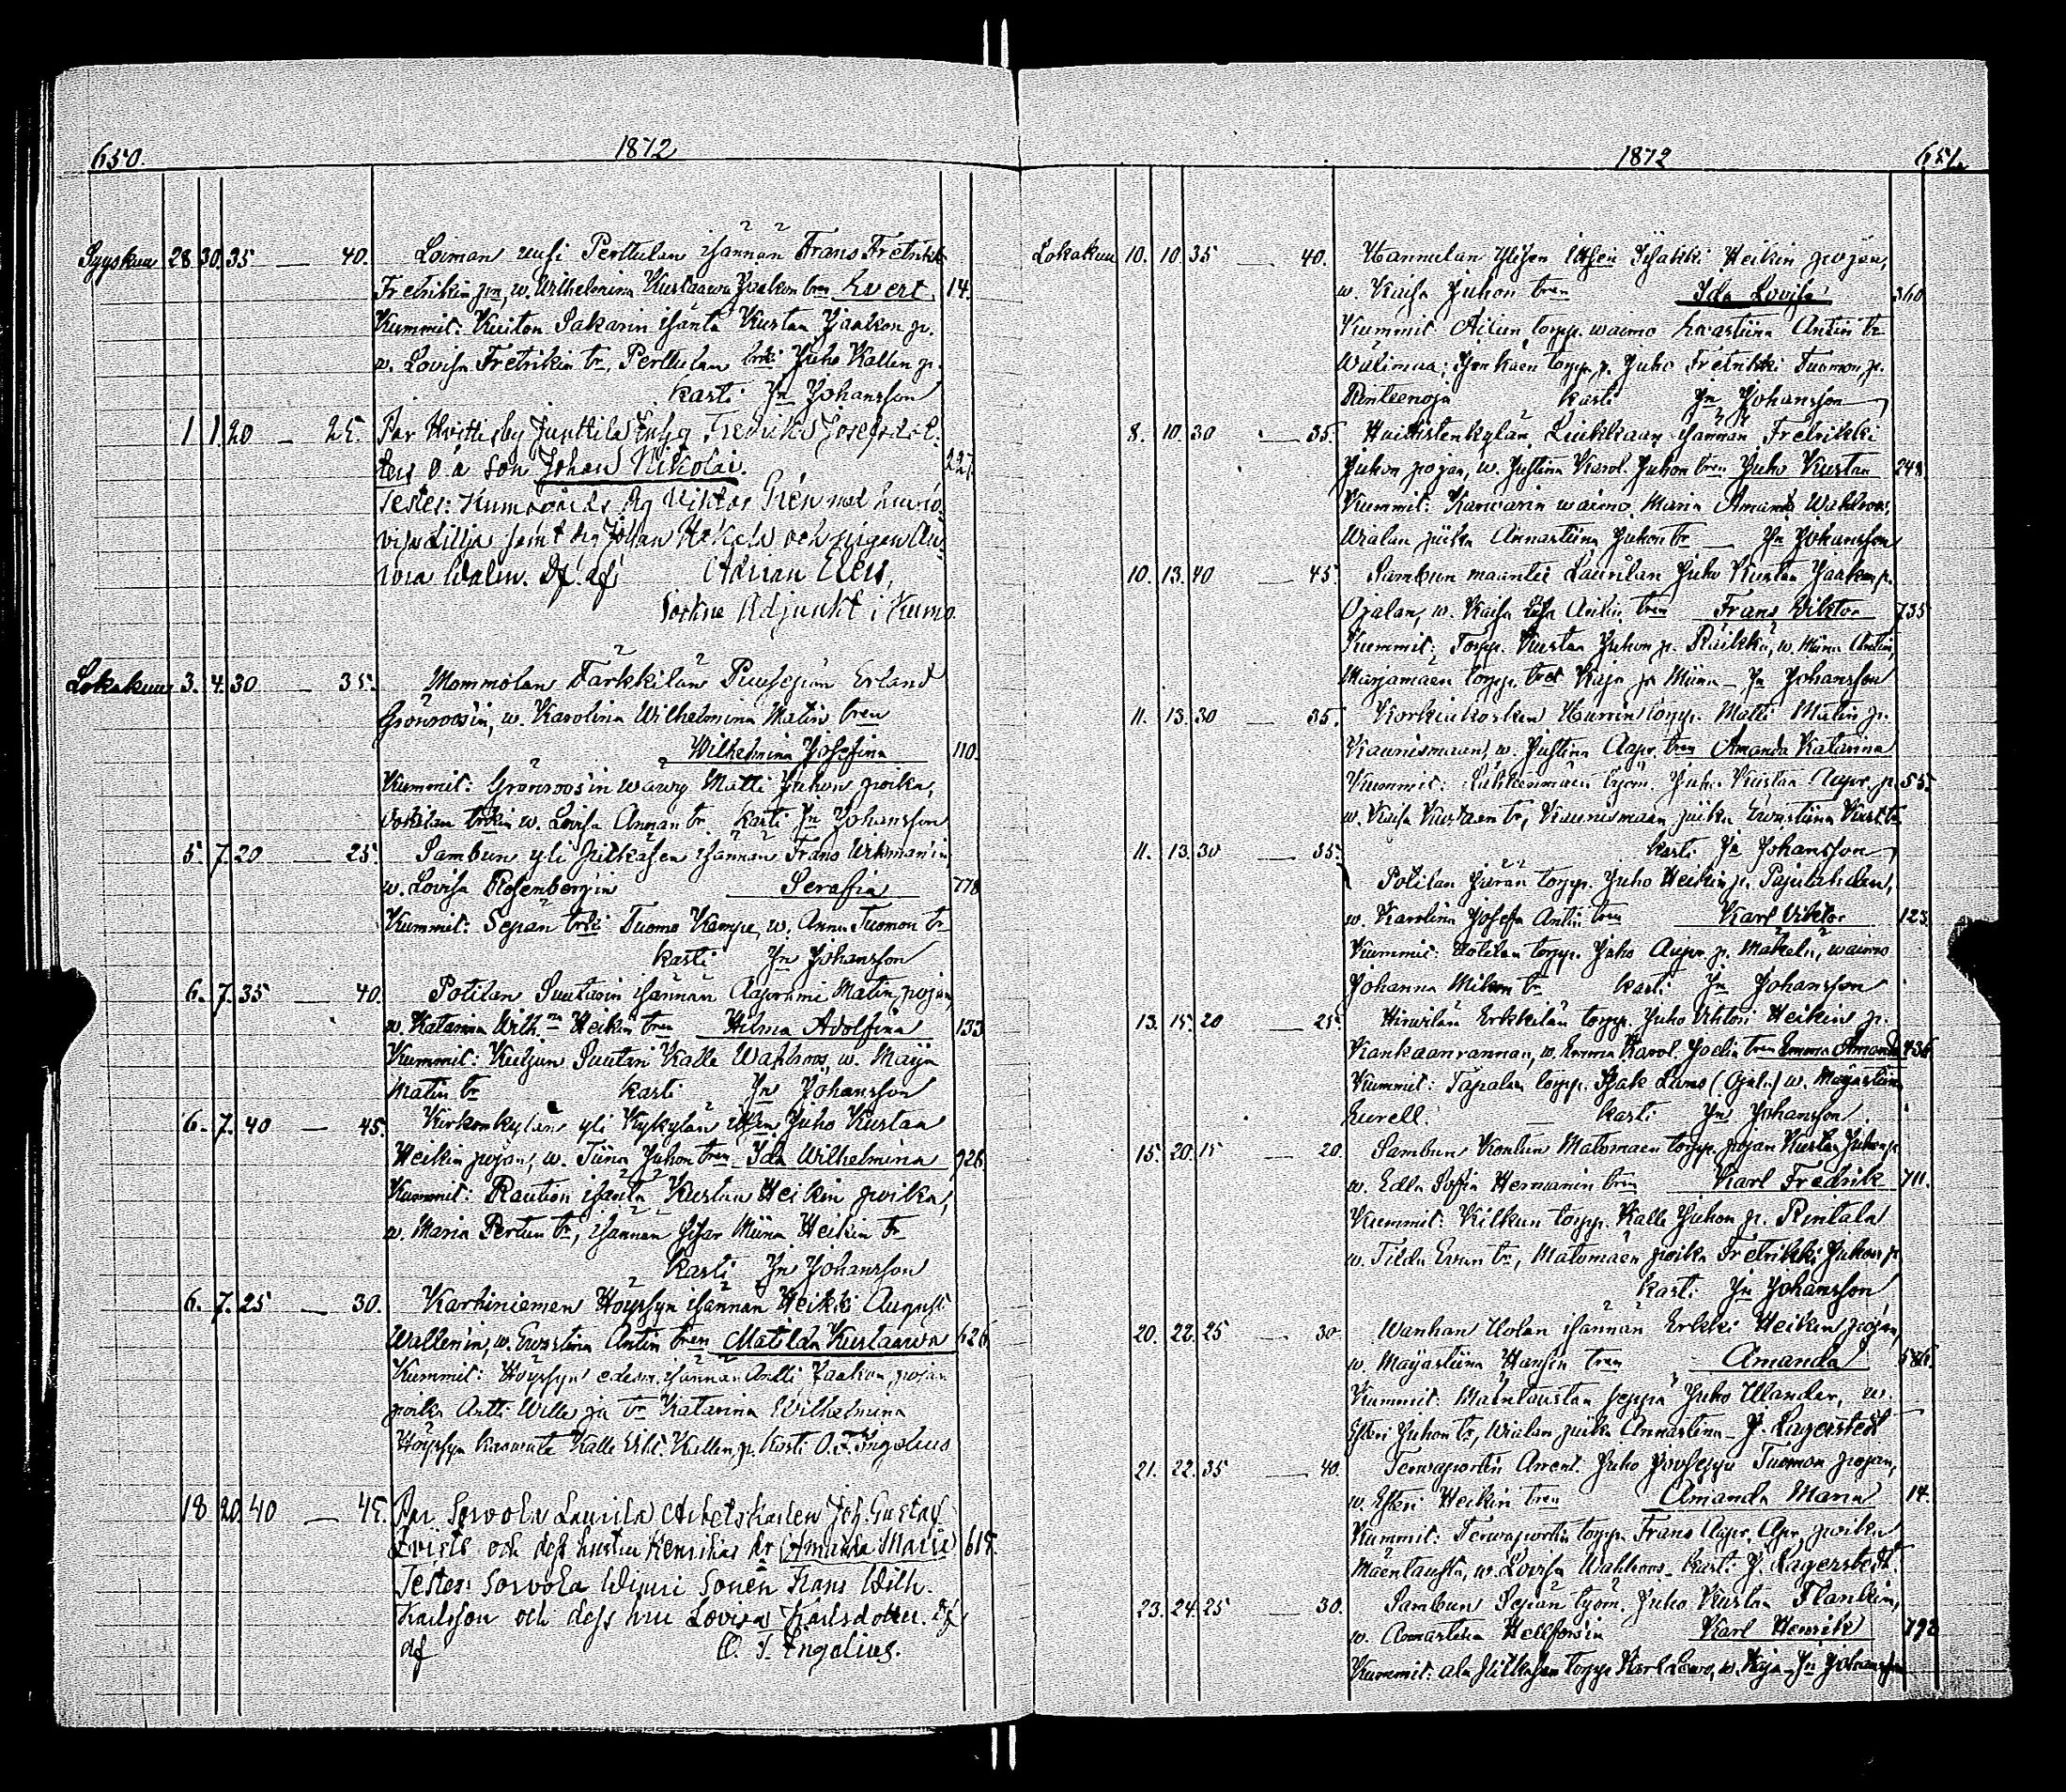 650.
1872
Syyskuu 28. 30. 35 — 40. Loiman uusi Perttulan isännän Frans Fretrikki
Fretrikin pn, w. Wilhelmina Kustaawa Jaakon tren Evert. 14.
Kummit: Kuiton Sakarin isäntä Kustaa Jaakon p.
w. Lovisa Fretrikin tr, Perttulan trki Juho Kallen p.
kasti Jn Johansson
1 1. 20 — 25. Par Hvittisby Junttila Fredrik Josefs
son Johan Nikolai. 227.
Testes: Viktor Grén med hustru
Lillja samt Johan och pigan Au-
rora Walin. Df. df. Adrian Elers,
Sockne Adjunkt i Kumo.
Lokakuu 3. 4. 30 — 35. Mommolan Tarkkilan Puusepän Erland
Grönroos'in, w. Karolina Wilhelmina Matin tren
Wilhelmina Josefina 110.
Kummit: Grönroos'in wäwy Matti Juhon poika,
w. Lovisa Annan tr. kasti Jn Johansson
5. 7. 20 — 25. Sambun yli Jutkasen isännän Frans Wikman'in
w. Lovisa Rosenberg'in Serafia 778
Kummit: Sepän trki Tuomo Kampe, w. Anna Tuomon tr
kasti Jn Johansson
6. 7. 35 — 40. Potilan Suutarin isännän Aaprami Matin pojan,
w. Katarina Wilh.na Heikin tren Hilma Adolfina 133
Kummit: Keiljun Suutari Kalle Wahlroos, w. Maija
Matin tr kasti Jn Johansson
6. 7. 40 — 45. Kirkonkylän yli Kykylän Juho Kustaa
Heikin pojan, w. Tiina Juhon tren Ida Wilhelmina 926
Kummit: Raution isäntä Kustaa Heikin poika,
w. Maria Pertun tr, isännän sisar Miina Heikin tr
kasti Jn Johansson
6. 7. 25 — 30. Karhiniemen Höyssyn isännän Heikki August
Wallen'in, w. Ewastina Antin tren Matilda Kustaawa 626
Kummit: Höyssyn edesm. isännän Antti Jaakon pojan
poika Antti Wille ja tr Katarina Wilhelmina
Höyssyn Kalle Wilh. Kallen p. Kasti O. F. Ingelius
18 20. 40 — 45. Par Sorvola Laurila Arbetskarlen Joh. Gustaf
Qvists och dess hustru Henrikas dr Amanda Maria 618.
Testes: Sorvola Wipuri Sonen Frans Wilh.
Karlsson och dess hru Lovisa Karlsdotter. Df
df O. F. Ingelius.
1872
651.
Lokakuu 10. 10. 35 — 40. Hannulan Ylisen itsen Isakki Heikin pojan,
w. Kaisa Juhon tren Ida Lovisa 360.
Kummit: Ailun torpp. waimo Ewastiina Antin tr
Wälimaa; torpp. p. Juho Fretrikki Tuomon p.
Rinteenoja kasti Jn Johansson
8. 10. 30 — 35. Huittistenkylän Liukkaan isännän Fretrikki
Juhon pojan, w. Justina Karol. Juhon tren Juho Kustaa 248.
Kummit: Karwarin waimo Maria Amanda Wahlroos,
Uralan piika Annastiina Juhon tr — Jn Johansson
10. 13. 40 — 45. Sambun maantie Laurilan Juho Kustaa Jaakon p.
Ojalan, w. Kaisa Liisa tren Frans Viktor 735
Kummit: Torpp. Kustaa Juhon p. Räikkä, w. Miina Antin,
Marjamaen torpp. tret Kaja ja Miina — Jn Johansson
11. 13. 30 — 35. Korkeakosken Hurrin torpp. Matti Matin p.
Kaunismaan, w. Justina Aapr. tren Amanda Katarina
Kummit: työm. Juho Kustaa Aapr. p. 55.
w. Kaisa Kustaan tr, Kaunismaan piika Ewastiina Kust. tr
kasti Jn Johansson
11. 13. 30 — 35. Potilan Juran torpp. Juho Heikin p. Pajulahden,
w. Karolina Josefa Antin tren Karl Viktor 123
Kummit: torpp. Juho Aapr. p. Mäkelä, waimo
Johanna Mikon tr kasti Jn Johansson
13. 15. 20 — 25. Hirwilän Erkkilän torpp. Juho Viktori Heikin p.
Kankaanrannan, w. Emma Karol. Joelin tren Emma Amanda 436
Kummit: Täpälän torpp. Isak Lares (Ojala) w. Majastiina
Eurell. kasti Jn Johansson
15. 20. 15 — 20. Sambun Kontun Matomäen torpp. pojan Kustaa Juhon p.
w. Edla Sofia Hermanin tren Karl Fredrik 711.
Kummit: Kilkun torpp. Kalle Juhon p. Rintala
w. Tilda Ewan tr, Matomäen poika Fretrikki Juhon p.
kasti Jn Johansson
20. 22. 25 — 30. Wanhan Uolan isännän Erkki Heikin pojan,
w. Majastiina Hansin tren Amanda 586.
Kummit: Mäentaustan seppä Juho Ulander, w.
Esteri Juhon tr, Uralan piika Annastina — J. Lagerstedt
21. 22. 35 — 40. Terwaportin Arrent. Juho Joosepin Tuomon pojan,
w. Esteri Heikin tren Amanda Maria 14.
Kummit: Terwaportin torpp. Frans Aapr. Apr. poika
Mäentausta, w. Lovisa Wahlroos — kasti J. Lagerstedt.
23. 24. 25 — 30. Sambun Sepän työm. Juho Kustaa Flankin,
w. Annastiina Hellfors'in Karl Henrik 792
Kummit: ala Jutkasen torpp. Karl Lewo, w. Kaja — Jn Johansson